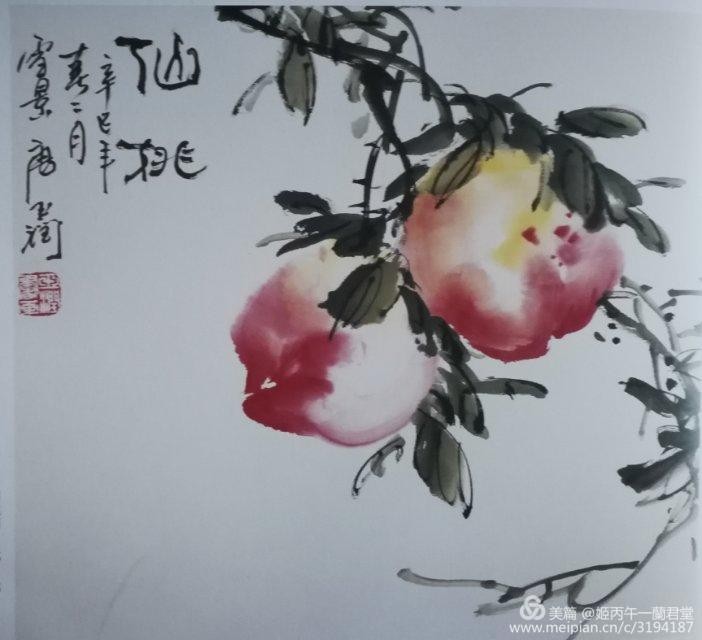 仙桃
辛巳年
春二月
雪景唐玉润
美篇 @姬丙午一蘭君堂
www.meipian.cn/c/3194187